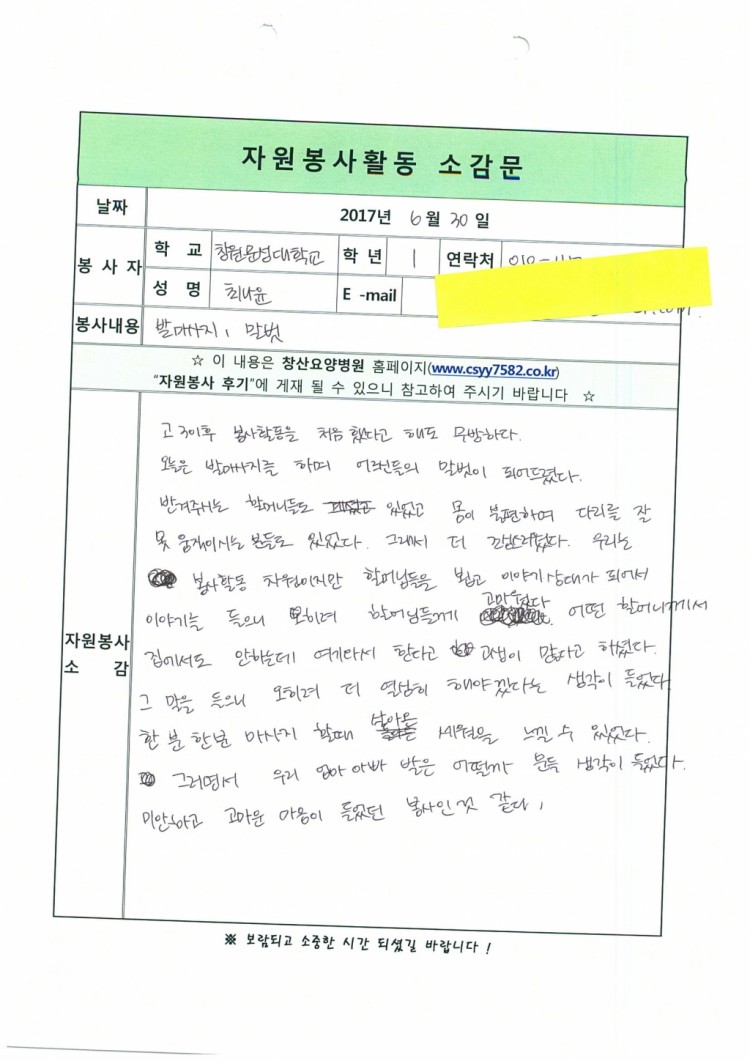 자원봉사활동 소감문
날짜 2017년 6월 30일
봉사자 학 교 창원문성대학교 학 년 1 연락처
성 명 최나윤 E -mail
봉사내용 발마사지, 말벗
☆ 이 내용은 창산요양병원 홈페이지(www.csyy7582.co.kr)
"자원봉사 후기"에 게재 될 수 있으니 참고하여 주시기 바랍니다 ☆
자원봉사
소 감
고3이후 봉사활동을 처음 했다고 해도 무방하다.
오늘은 발마사지를 하며 어르신들의 말벗이 되어드렸다.
반겨주시는 할머니들도 있었고 몸이 불편하여 다리를 잘
못 움직이시는 분들도 있었다. 그래서 더 조심스러웠다. 우리는
봉사활동 차원이지만 할머님들을 뵙고 이야기상대가 되어서
이야기를 들으니 오히려 할머님들께 고마웠다. 어떤 할머니께서
집에서도 안하는데 여기와서 한다고 고생이 많다고 하셨다.
그 말을 들으니 오히려 더 열심히 해야겠다는 생각이 들었다.
한 분 한분 마사지 할때 살아온 세월을 느낄 수 있었다.
그러면서 우리 엄마 아빠 발은 어떤가 문득 생각이 들었다.
미안하고 고마운 마음이 들었던 봉사인것 같다.
※ 보람되고 소중한 시간 되셨길 바랍니다 !